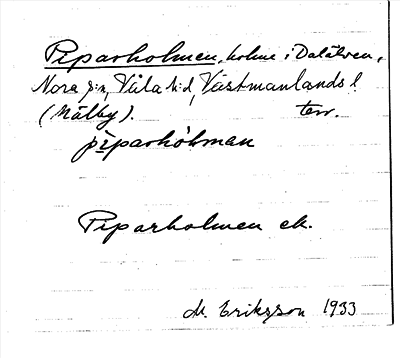 Piparholmen, holme i Dalälven,
Nora s:n, Våla h:d, Västmanlands l.
(Målby). terr.
pìparhòlman
Piparholmen ek.
M. Eriksson 1933